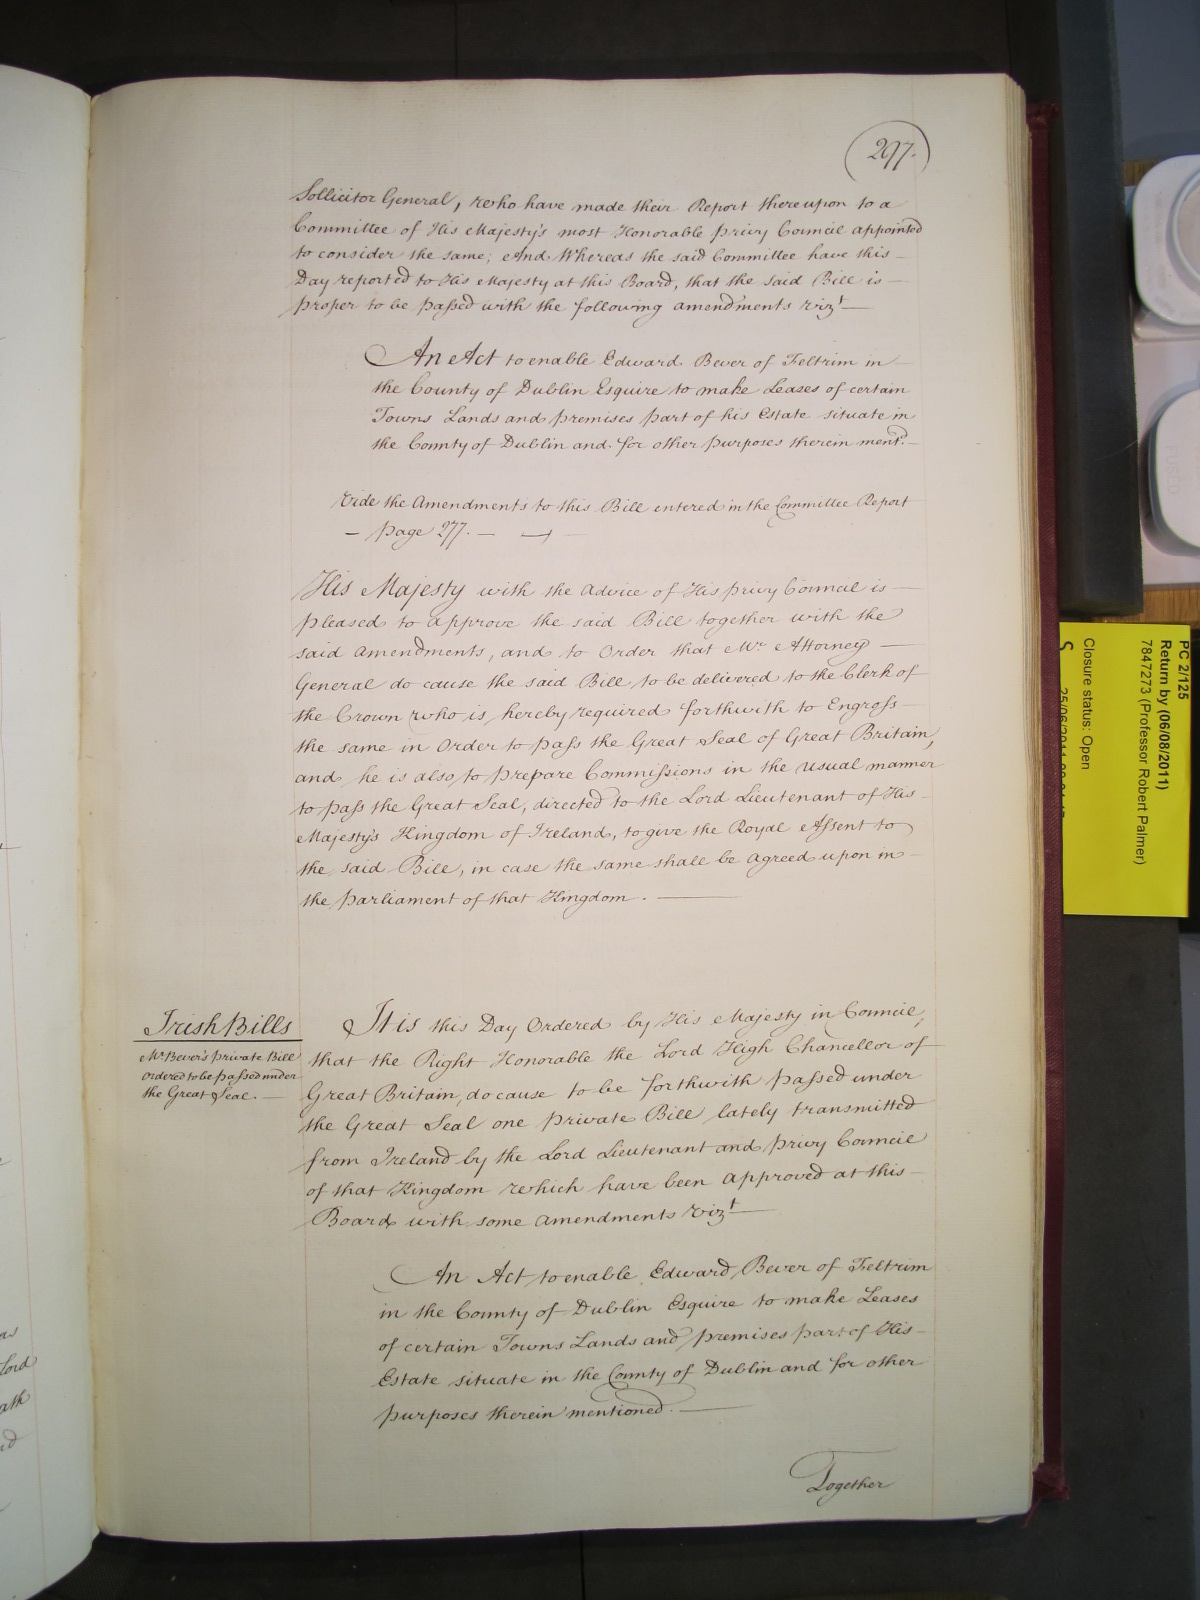 297.
Sollicitor General, who have made their Report thereupon to a
Committee of His Majesty's most Honorable privy Council appointed
to consider the same; And Whereas the said Committee have this
Day reported to His Majesty at this Board, that the said Bill is
proper to be passed with the following amendments vizt
An Act to enable Edward Bever of Feltrim in
the County of Dublin Esquire to make Leases of certain
Towns Lands and premises part of his Estate situate in
the County of Dublin and for other purposes therein mentd.
Vide the Amendments to this Bill entered in the Committee Report
page 277.
His Majesty with the Advice of His privy Council is
pleased to approve the said Bill together with the
said Amendments, and to Order that Mr. Attorney
General do cause the said Bill to be delivered to the Clerk of
the Crown who is hereby required forthwith to Engross
the same in Order to pass the Great Seal of Great Britain,
and he is also to prepare Commissions in the usual manner
to pass the Great Seal, directed to the Lord Lieutenant of His
Majesty's Kingdom of Ireland, to give the Royal Assent to
the said Bill, in case the same shall be agreed upon in
the parliament of that Kingdom.
Irish Bills
Mr Bever's private Bill
Ordered to be passed under
the Great Seal.
It is this Day Ordered by His Majesty in Council,
that the Right Honorable the Lord High Chancellor of
Great Britain, do cause to be forthwith passed under
the Great Seal one private Bill lately transmitted
from Ireland by the Lord Lieutenant and privy Council
of that Kingdom which have been approved at this
Board with some amendments vizt
An Act to enable Edward Bever of Feltrim
in the County of Dublin Esquire to make Leases
of certain Towns Lands and premises part of His
Estate situate in the County of Dublin and for other
purposes therein mentioned.
Together
Lord
PC 2/125
Return by (06/08/2011)
7847273 (Professor Robert Palmer)
Closure status: Open
S